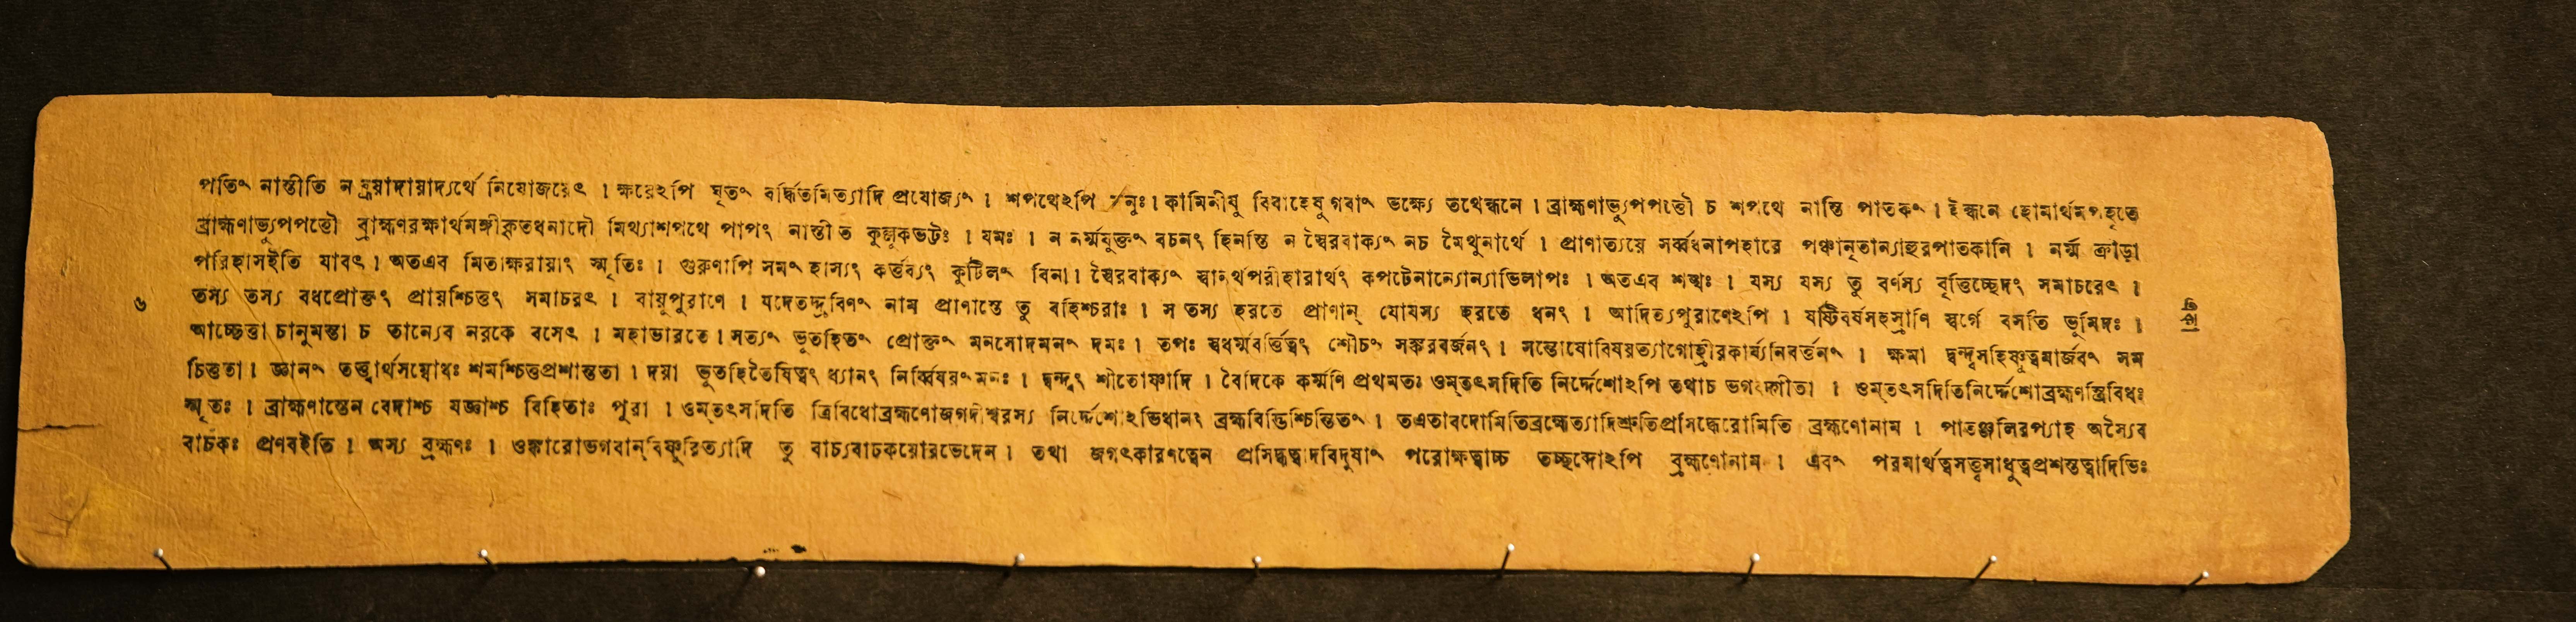 পতিং নাস্তীতি ন ব্রূয়াদায়াদ্যর্থে নিযোজয়েৎ । ক্ষয়েঽপি ঘৃতং বর্দ্ধিতমিত্যাদি প্রযোজ্যং । শপথেঽপি মনুঃ। কামিনীষু বিবাহেষু গবাং ভক্ষ্যে তথেন্ধনে । ব্রাহ্মণাভ্যুপপত্তৌ চ শপথে নাস্তি পাতকং । ইন্ধনে হোমার্থমপহৃতে
ব্রাহ্মণাভ্যুপপত্তৌ ব্রাহ্মণরক্ষার্থমঙ্গীকৃতধনাদৌ মিথ্যাশপথে পাপং নাস্তীতি কুল্লূকভট্টঃ । যমঃ । ন নর্ম্মযুক্তং বচনং হিনস্তি ন স্বৈরবাক্যং নচ মৈথুনার্থে । প্রাণাত্যয়ে সর্ব্বধনাপহারে পঞ্চানৃতান্যাহুরপাতকানি । নর্ম্ম ক্রীড়া
পরিহাসইতি যাবৎ । অতএব মিতাক্ষরায়াং স্মৃতিঃ । গুরুণাপি সমং হাস্যং কর্ত্তব্যং কুটিলং বিনা। স্বৈরবাক্যং স্বানর্থপরীহারার্থং কপটেনান্যোন্যাভিলাপঃ । অতএব শঙ্খঃ । যস্য যস্য তু বর্ণস্য বৃত্তিচ্ছেদং সমাচরেৎ ।
৬ তস্য তস্য বধপ্রোক্তং প্রায়শ্চিত্তং সমাচরৎ । বায়ুপুরাণে । যদেতদ্দ্রবিণং নাম প্রাণাস্তে তু বহিশ্চরাঃ । স তস্য হরতে প্রাণান্ যোযস্য হরতে ধনং । আদিত্যপুরাণেঽপি । ষষ্টিবর্ষসহস্রাণি স্বর্গে বসতি ভূমিদঃ ।
আচ্ছেত্তা চানুমন্তা চ তান্যেব নরকে বসেৎ । মহাভারতে। সত্যং ভূতহিতং প্রোক্তং মনসোদমনং দমঃ । তপঃ স্বধর্ম্মবর্ত্তিত্বং শৌচং সঙ্করবর্জনং । সন্তোষোবিষয়ত্যাগোহ্রীরকার্য্যনিবর্ত্তনং । ক্ষমা দ্বন্দ্বসহিষ্ণুত্বমার্জবং সম
চিত্ততা । জ্ঞানং তত্ত্বার্থসম্বোধঃ শমশ্চিত্তপ্রশান্ততা । দয়া ভূতহিতৈষিত্বং ধ্যানং নির্ব্বিষয়ং মনঃ । দ্বন্দ্বং শীতোষ্ণাদি । বৈদিকে কর্ম্মণি প্রথমতঃ ওম্তৎসদিতি নির্দ্দেশোঽপি তথাচ ভগবদ্গীতা । ওম্তৎসদিতিনির্দ্দেশোব্রহ্মণস্ত্রিবিধঃ
স্মৃতঃ । ব্রাহ্মণাস্তেন বেদাশ্চ যজ্ঞাশ্চ বিহিতাঃ পুরা । ওম্তৎসদিতি ত্রিবিধোব্রহ্মণোজগদীশ্বরস্য নির্দ্দেশোঽভিধানং ব্রহ্মবিদ্ভিশ্চিন্তিতং । তএতাবদোমিতিব্রহ্মেত্যাদিশ্রুতিপ্রসিদ্ধেরোমিতি ব্রহ্মণোনাম । পাতঞ্জলিরপ্যাহ অস্যৈব
বাচকঃ প্রণবইতি । অস্য ব্রহ্মণঃ । ওঙ্কারোভগবান্‌বিষ্ণুরিত্যাদি তু বাচ্যবাচকয়োরভেদেন । তথা জগৎকারণত্বেন প্রসিদ্ধত্বাদবিদুষাং পরোক্ষত্বাচ্চ তচ্ছব্দোঽপি ব্রহ্মণোনাম । এবং পরমার্থত্বসত্ত্বসাধুত্বপ্রশস্তত্বাদিভিঃ